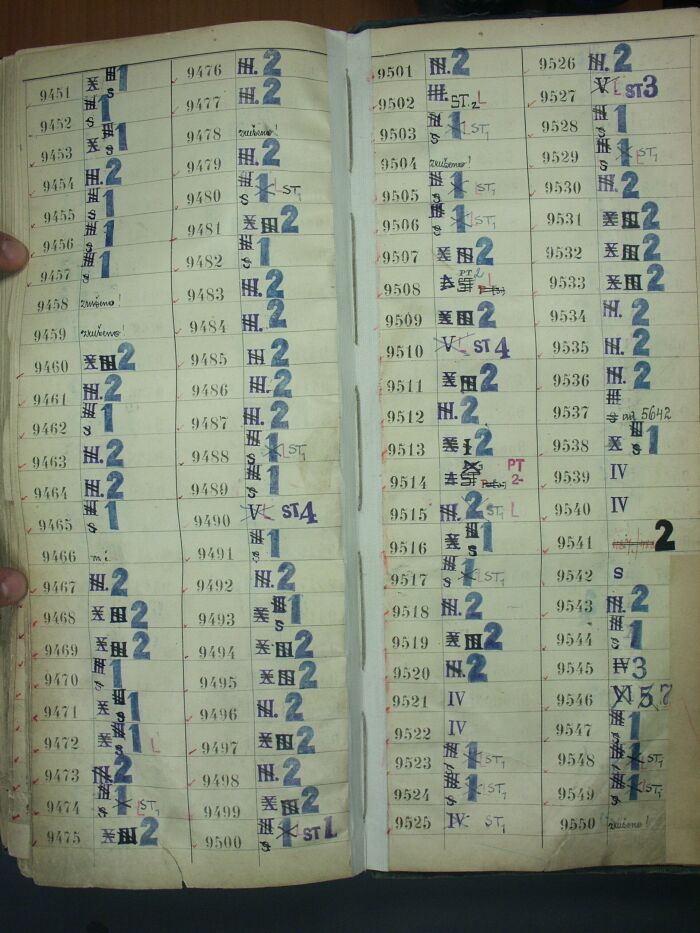 9451 X III S 1
9452 III S 1
9453 X III S 1
9454 III. 2
9455 III S 1
9456 III S 1
9457 III S 1
9458 zrušeno!
9459 zrušeno!
9460 X III 2
9461 III. 2
9462 III S 1
9463 III. 2
9464 III. 2
9465 III S 1
9466
9467 III. 2
9468 X III 2
9469 X III 2
9470 III S 1
9471 X III S 1
9472 X III S 1 L
9473 III 2
9474 III S 1 X L ST1
9475 X III 2
9476 III. 2
9477 III. 2
9478 zrušeno!
9479 III. 2
9480 III S 1 X L ST1
9481 X III 2
9482 III S 1
9483 III. 2
9484 III. 2
9485 III 2
9486 III. 2
9487 III. 2
9488 III S 1 X L ST1
9489 III S 1
9490 V L ST4
9491 III S 1
9492 III. 2
9493 X III S 1
9494 X III 2
9495 X III 2
9496 III. 2
9497 X III 2
9498 III. 2
9499 X III 2
9500 III S 1 X ST1
9501 III. 2
9502 III. ST.2 L
9503 III S 1 X L ST1
9504 zrušeno!
9505 III S 1 X L ST1
9506 III S 1 X L ST1
9507 X III 2
9508 A ST PT 2
9509 X III 2
9510 V L ST4
9511 X III 2
9512 III. 2
9513 X I 2
9514 A ST PT 2-
9515 III. 2 ST1 L
9516 X III S 1
9517 III S 1 X L ST1
9518 III. 2
9519 X III 2
9520 III. 2
9521 IV
9522 IV
9523 III S 1 X L ST1
9524 III S 1 X L ST1
9525 IV ST1
9526 III. 2
9527 V. L ST3
9528 III S 1
9529 III S 1 X L ST1
9530 III. 2
9531 X III 2
9532 X III 2
9533 X III 2
9534 III. 2
9535 III. 2
9536 III. 2
9537 III S vid 5642
9538 X III S 1
9539 IV
9540 IV
9541 2
9542 S
9543 III. 2
9544 III S 1
9545 IV 3
9546 XI 5 7
9547 III S 1
9548 III S 1 X L ST1
9549 III S 1 X L ST1
9550 zrušeno!